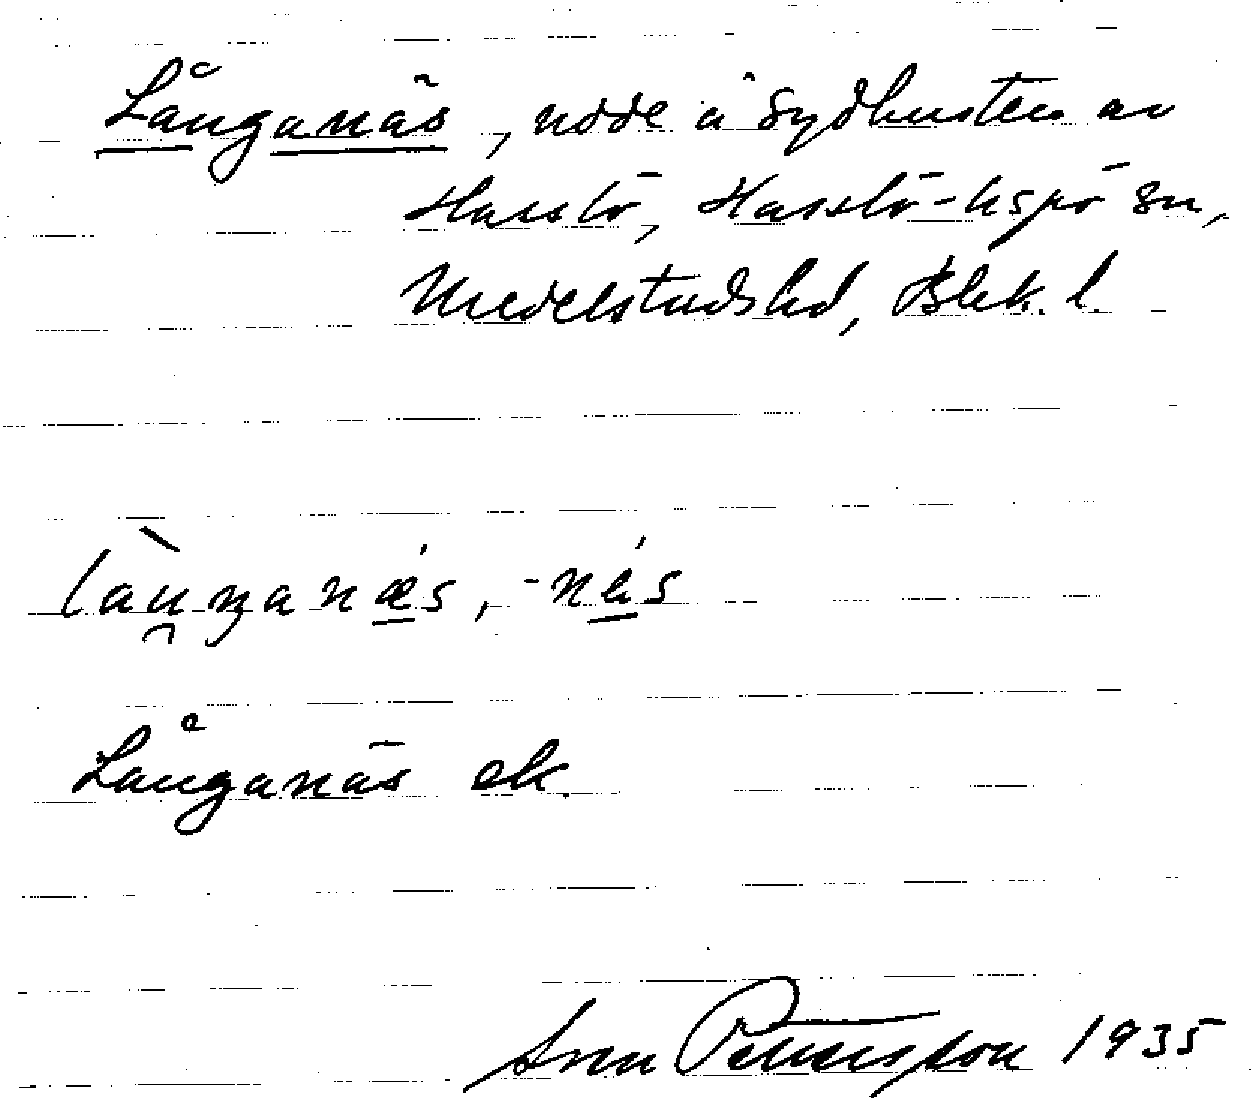 Långanäs, udde å Sydkusten av
Hasslö, Hasslö-Aspö sn,
Medelstads hd, Blek. l.
Långanäs ek.
Sven Petersson 1935